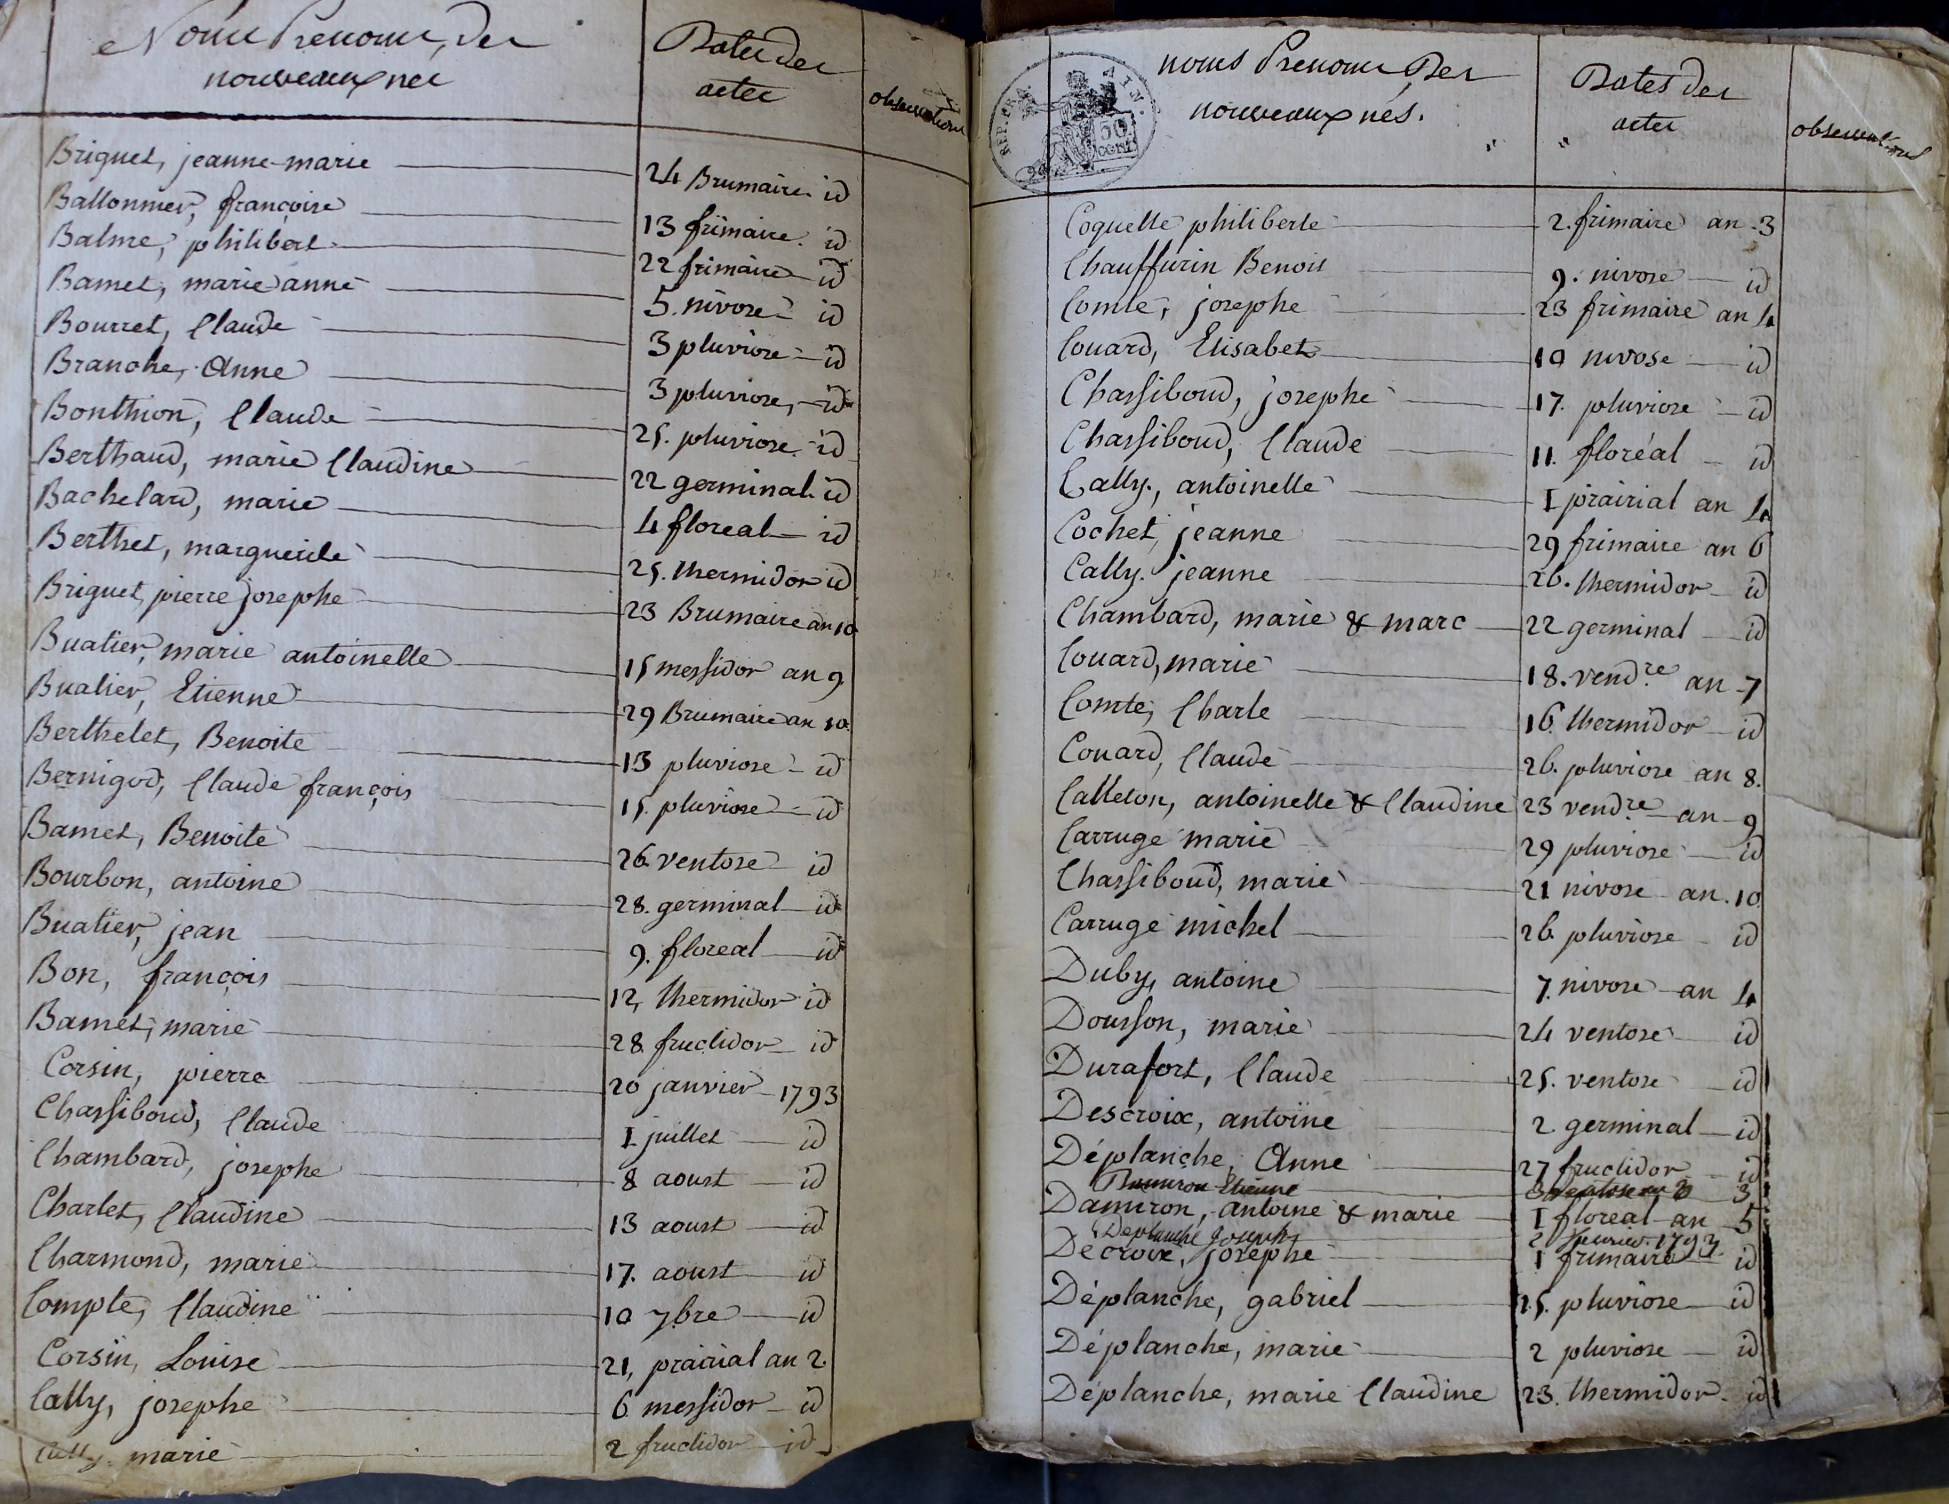 Noms Prenoms, des
nouveaux nés
Dates des
actes
observations
Briguet, jeanne-marie 24 Brumaire id
Ballonmier, françoise 13 frimaire. id
Balme, philibert 22 frimaire id
Bamet, marie anne 5. nivose id
Bourret, Claude 3 pluviose id
Branche, Anne 3 pluviose, id
Bonthion, Claude 25. pluviose id
Berthaud, marie Claudine 22 germinal. id
Bachelard, marie 4 floreal id
Berthet, marguerite 25. thermidor id
Briguet, pierre josephe 23 Brumaire an 10
Buatier, marie antoinette 15 messidor an 9
Buatier, Etienne 29 Brumaire an 10.
Berthelet, Benoite 13 pluviose id
Bernigod, Claude françois 15. pluviose id
Bamet, Benoite 26 ventose id
Bourbon, antoine 28. germinal id
Buatier, jean 9. floreal id
Bon, françois 12, thermidor id
Bamet, marie 28 fructidor id
Corsin, pierre 20 janvier 1793
Chassiboud, Claude 1 juillet id
Chambard, josephe 8 aoust id
Charlet, Claudine 13 aoust id
Charmond, marie 17. aoust id
Compte, Claudine 10 7bre id
Corsin, Louise 21, prairial an 2.
Cally, josephe 6 messidor id
Cally. marie 2 fructidor id
REP. FRA
AIN.
50
cent
noms Prenoms Des
nouveaux nés.
Dates des
actes
observations
Coquette philiberte 2. frimaire an 3
Chauffurin Benoit 9. nivose id
Comte, josephe 23 frimaire an 4
Couard, Elisabet 10 nivose id
Chassiboud, josephe 17. pluviose id
Chassiboud, Claude 11. floréal id
Cally, antoinette 1 prairial an 4
Cochet, jeanne 29 frimaire an 6
Cally. jeanne 26. thermidor id
Chambard, marie & marc 22 germinal id
Couard, marie 18. vend.re an 7
Comte, Charle 16 thermidor id
Couard, Claude 26. pluviose an 8.
Calleton, antoinette & Claudine 23 vend.re an 9
Carruge marie 29 pluviose id
Chassiboud, marie 21 nivose an 10
Carruge michel 26 pluviose id
Duby, antoine 7. nivose an 4
Dousson, marie 24 ventose id
Durafort, Claude 25. ventose id
Descroix, antoine 2 germinal id
Déplanche, Anne 27 fructidor id
Etienne ventose an 3
Damiron, antoine & marie 1 floreal an 5
Deplanche Joseph 2 1793
Decroix, josephe 1 frimaire id
Déplanche, gabriel 15. pluviose id
Déplanche, marie 2 pluviose id
Déplanche, marie Claudine 23. thermidor id